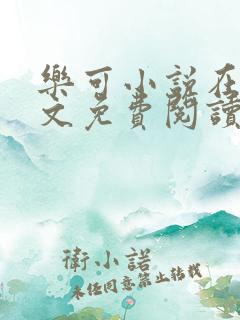 樂可小說在
文免費閱讀
衛小諾
未經同意禁止轉載